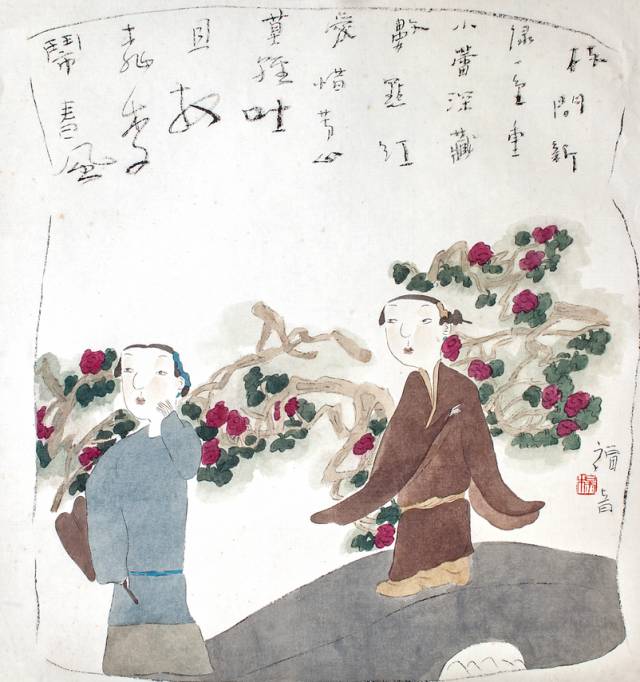 枝間新
綠一重重
小蕾深藏
數點紅
愛惜芳心
莫輕吐
且教
桃李
鬧春風
福音